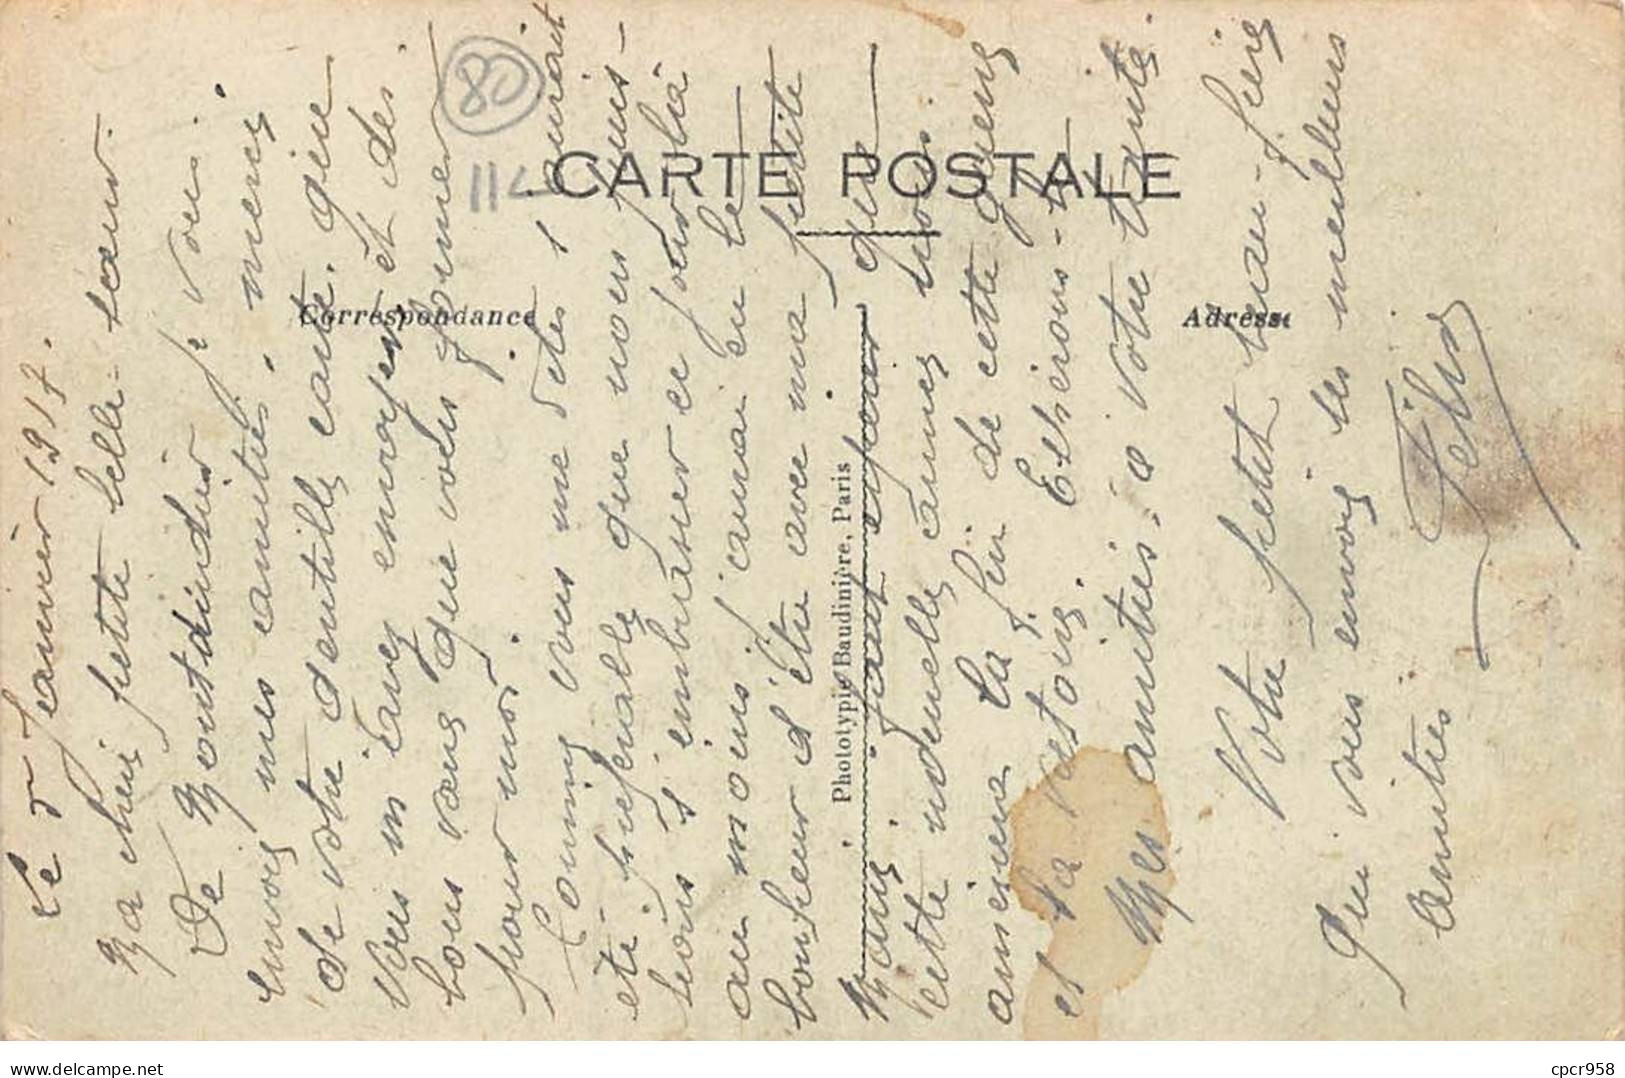 Le 5 Janvier 1917.
Ma chère petite belle-sœur.
De Montdidier je vous
envois mes amitiés, merci
de votre gentille carte. que
vous m'avez envoyer et des
bons vœux que vous formez
pour moi.
Comme vous me dites, s'aurait
été préférable que nous puis-
sions s'embrasser ce jour là
au moins j'aurai eu le
bonheur d'être avec ma petite
Mais il faut espérer que
cette nouvelle année nous
amènera la fin de cette guerre
et la victoire. Espérons-le
Mes amitiés, à votre tante.
Votre petit beau-frère
qui vous envoie ses meilleurs
amitiés
Félix
CARTE POSTALE
Correspondance
Adresse
Phototypie Baudinière, Paris
80
114
delcampe.net
cpcr958